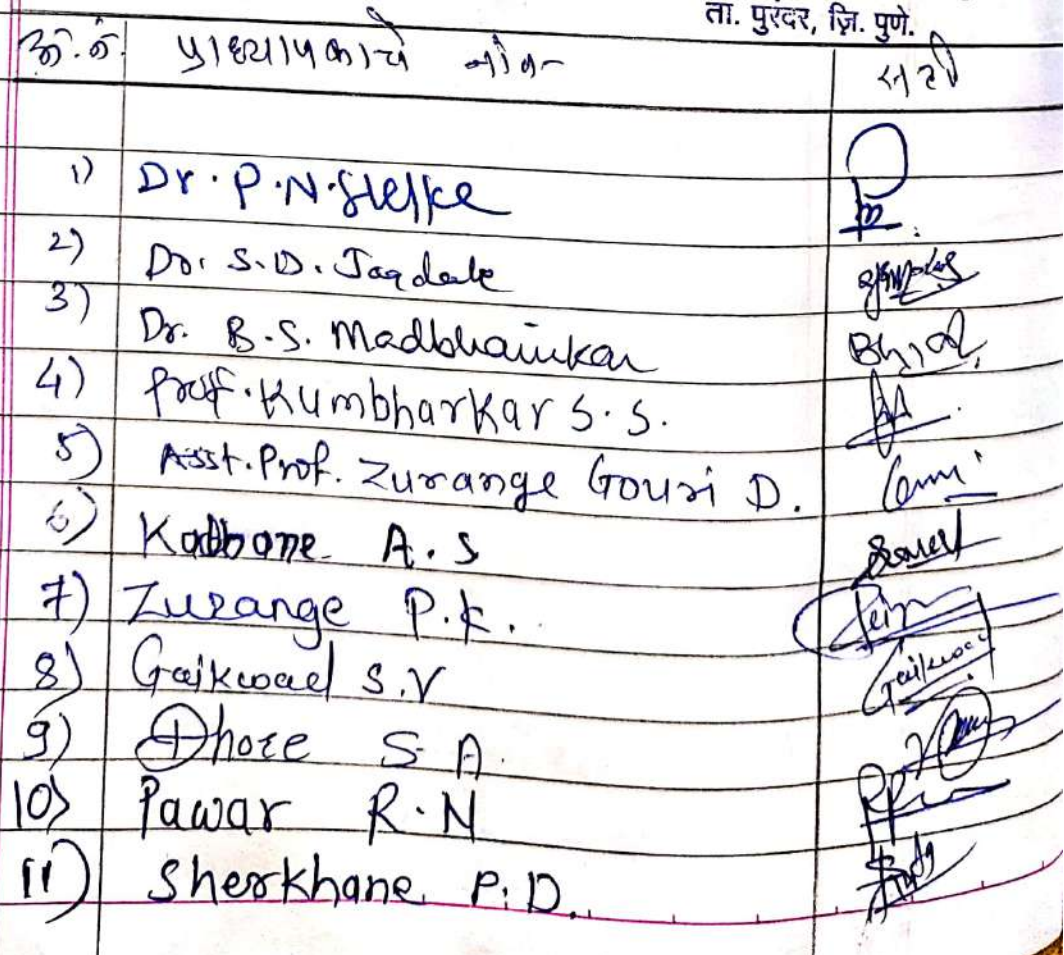 ता. पुरंदर, ज़ि. पुणे.
अ.नं. प्राध्यापकाचे नांव सही
1) Dr. P. N. Shelke
2) Dr. S. D. Jagdale
3) Dr. B. S. Madbhavikar
4) Prof. Kumbharkar S. S.
5) Asst. Prof. Zurange Gouri D.
6) Kadbane A. S
7) Zurange P. K.
8) Gaikwad S. V Gaikwad
9) Dhore S A.
10) Pawar R. N
11) Sherkhane P. D.